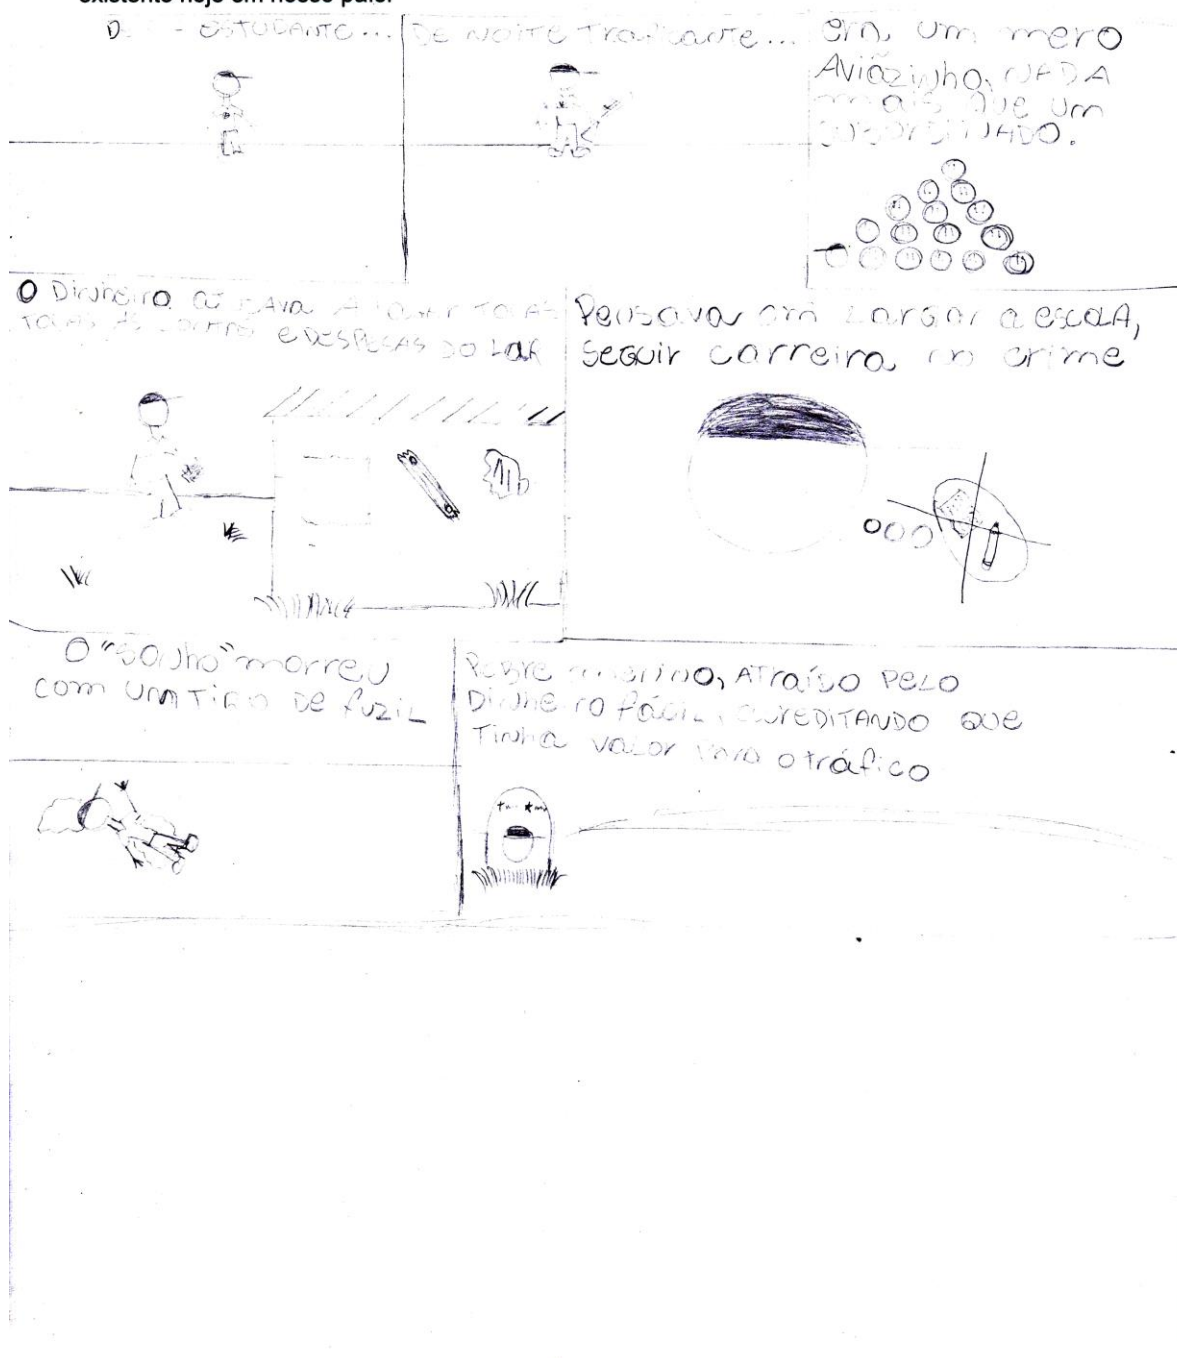 existente hoje em nosso país.
D - ESTUDANTE...
DE NOITE TRAFICANTE...
era, um mero
Aviãozinho, NADA
mais que um
SUBORDINADO.
O DINHEIRO AJUDAVA A PAGAR TODAS
TODAS AS CONTAS E DESPESAS DO LAR
Pensava em Largar a escola,
seguir carreira no crime
O "Sonho" morreu
com um Tiro de fuzil
Pobre menino, ATraído Pelo
Dinheiro fácil, acreditando que
Tinha valor para o tráfico